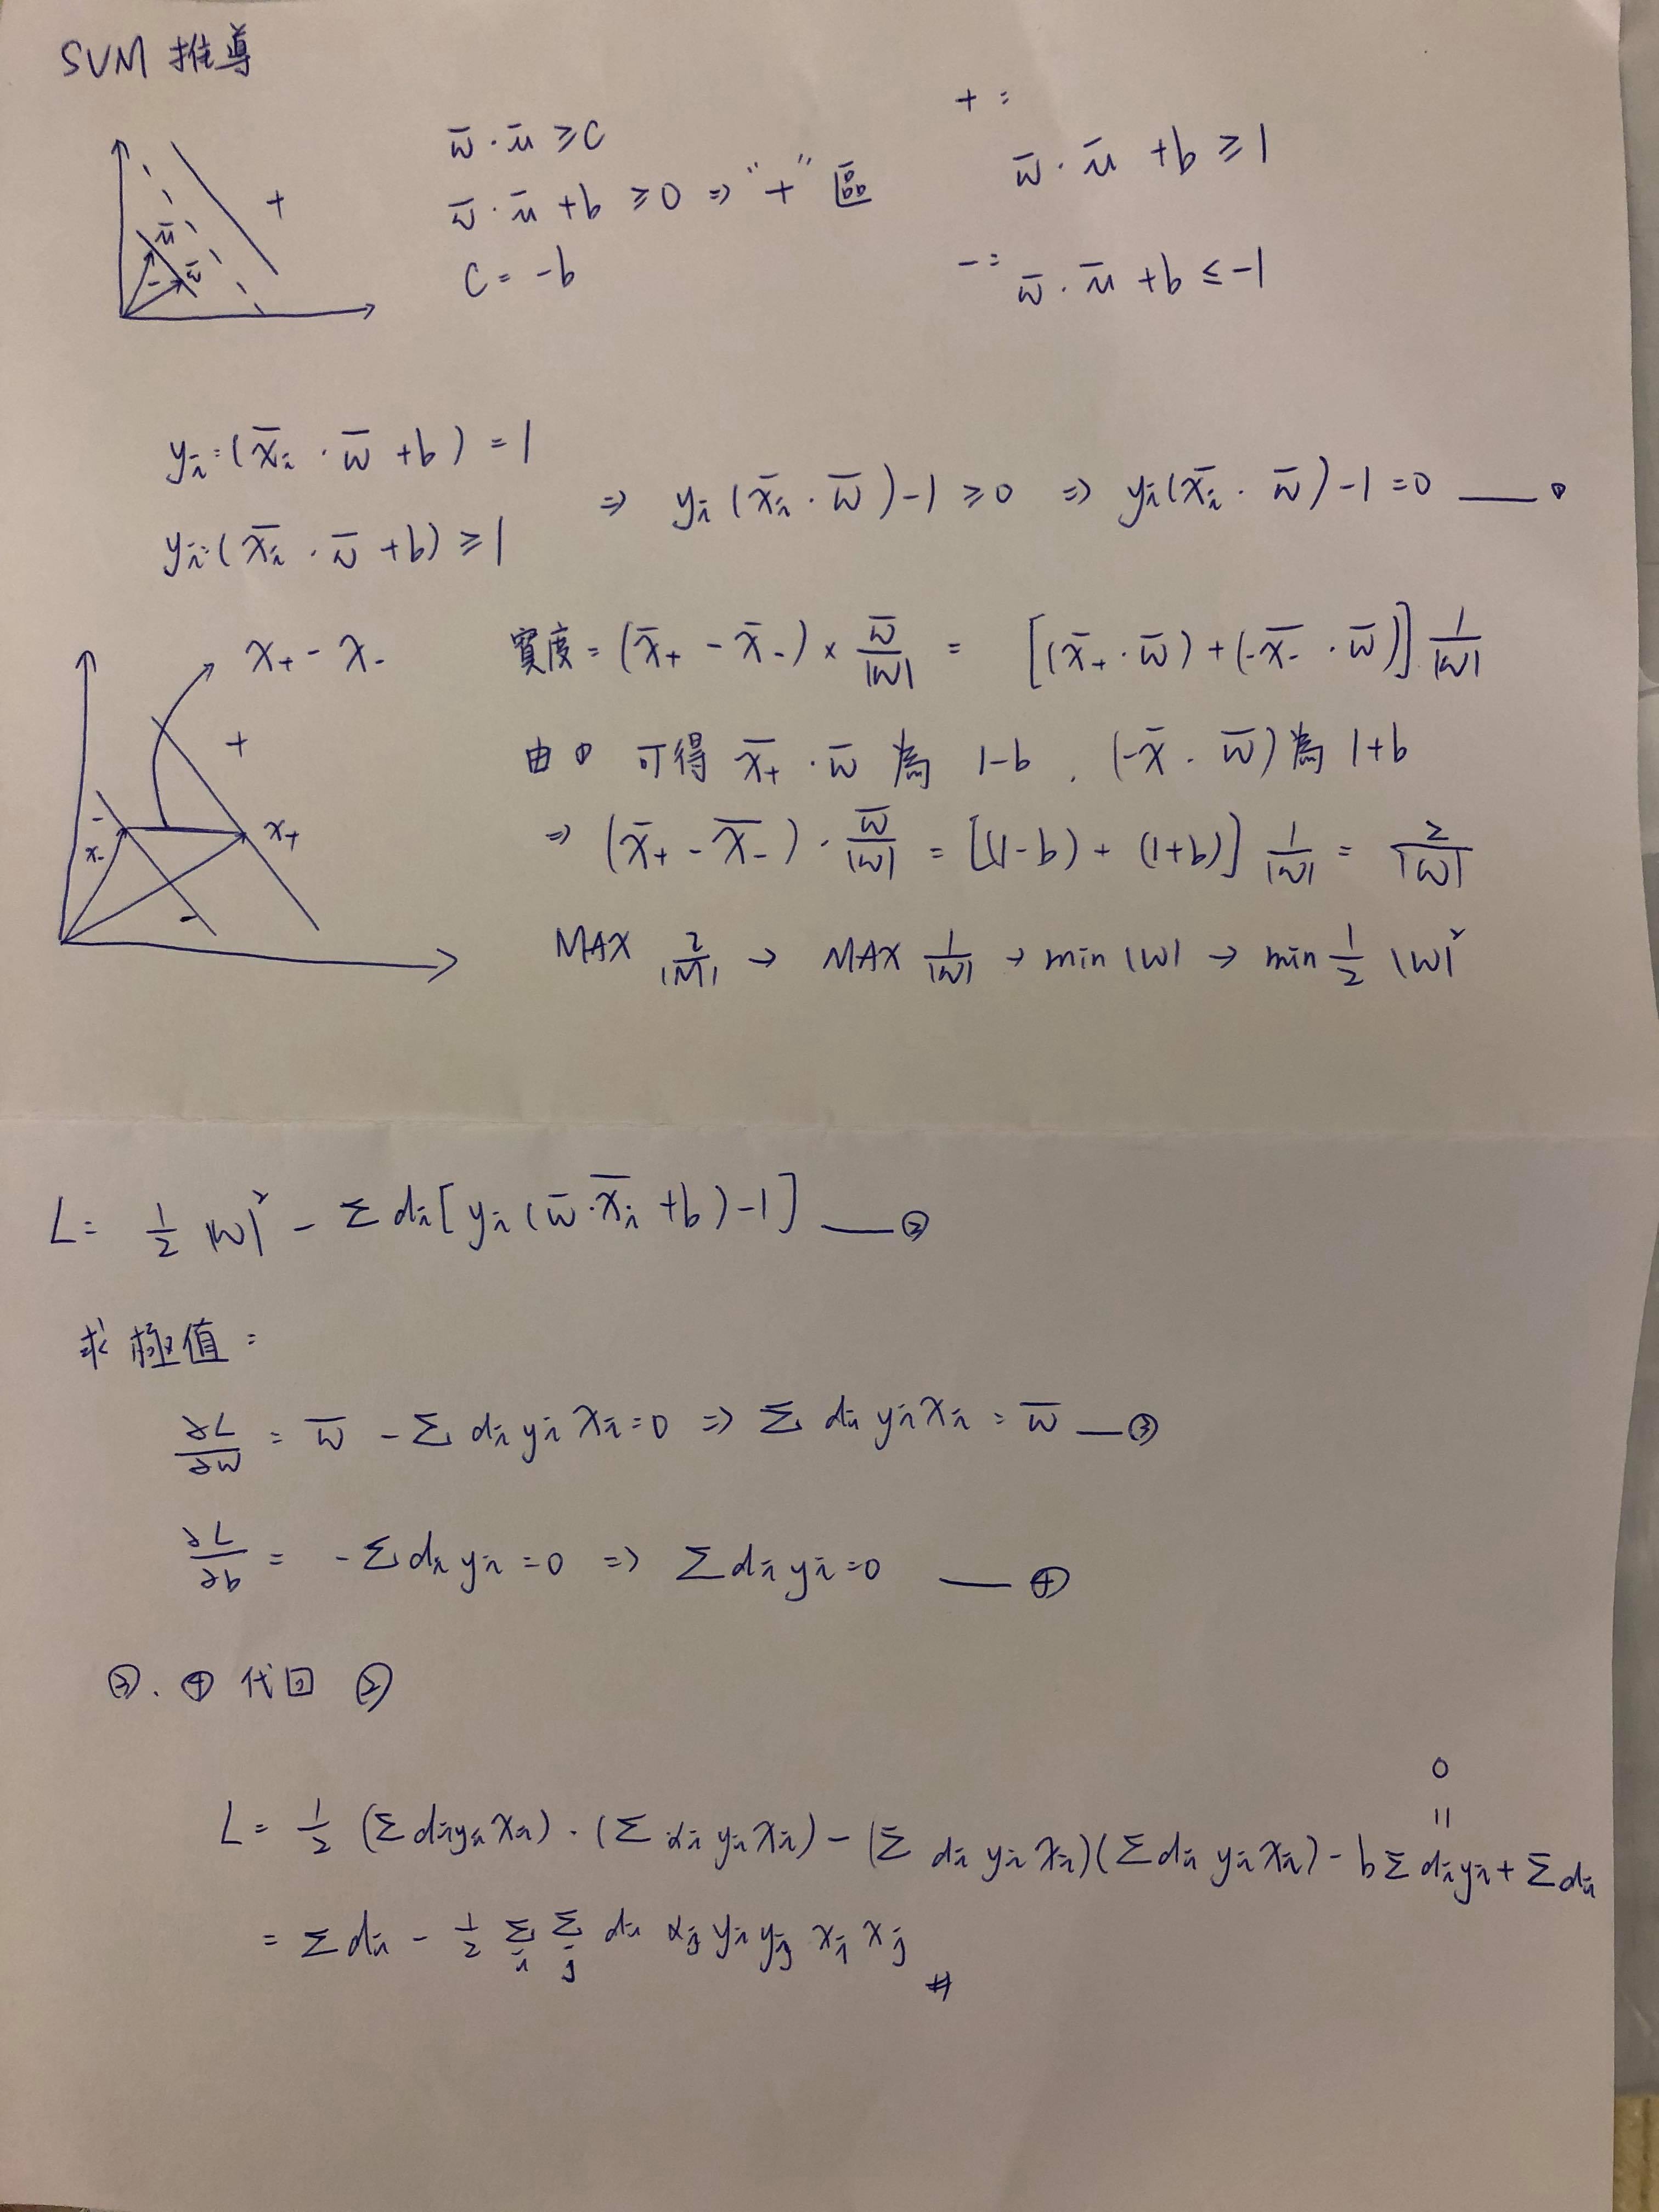 SVM 推導
w̄ · ū ≥ C
w̄ · ū + b ≥ 0 ⇒ "+" 區
C = -b
+ :
w̄ · ū + b ≥ 1
- : w̄ · ū + b ≤ -1
+
ū
w̄
-
yᵢ = (x̄ᵢ · w̄ + b) = 1
yᵢ = (x̄ᵢ · w̄ + b) ≥ 1
⇒ yᵢ (x̄ᵢ · w̄) - 1 ≥ 0 ⇒ yᵢ (x̄ᵢ · w̄) - 1 = 0 — ①
x₊ - x₋
+
-
x₋
x₊
-
寬度 = (x̄₊ - x̄₋) × w̄/|w| = [(x̄₊ · w̄) + (-x̄₋ · w̄)] 1/|w|
由 ① 可得 x̄₊ · w̄ 為 1-b 、 (-x̄ · w̄) 為 1+b
⇒ (x̄₊ - x̄₋) · w̄/|w| = [(1-b) + (1+b)] 1/|w| = 2/|w|
MAX 2/|w| → MAX 1/|w| → min |w| → min 1/2 |w|²
L = 1/2 |w|² - Σ αᵢ [yᵢ (w̄ · x̄ᵢ + b) - 1] — ②
求極值 :
∂L/∂w = w̄ - Σ αᵢ yᵢ xᵢ = 0 ⇒ Σ αᵢ yᵢ xᵢ = w̄ — ③
∂L/∂b = - Σ αᵢ yᵢ = 0 ⇒ Σ αᵢ yᵢ = 0 — ④
③、④ 代回 ②
0
||
L = 1/2 (Σ αᵢ yᵢ xᵢ) · (Σ αᵢ yᵢ xᵢ) - (Σ αᵢ yᵢ xᵢ)(Σ αᵢ yᵢ xᵢ) - b Σ αᵢ yᵢ + Σ αᵢ
= Σ αᵢ - 1/2 Σᵢ Σⱼ αᵢ αⱼ yᵢ yⱼ xᵢ xⱼ #